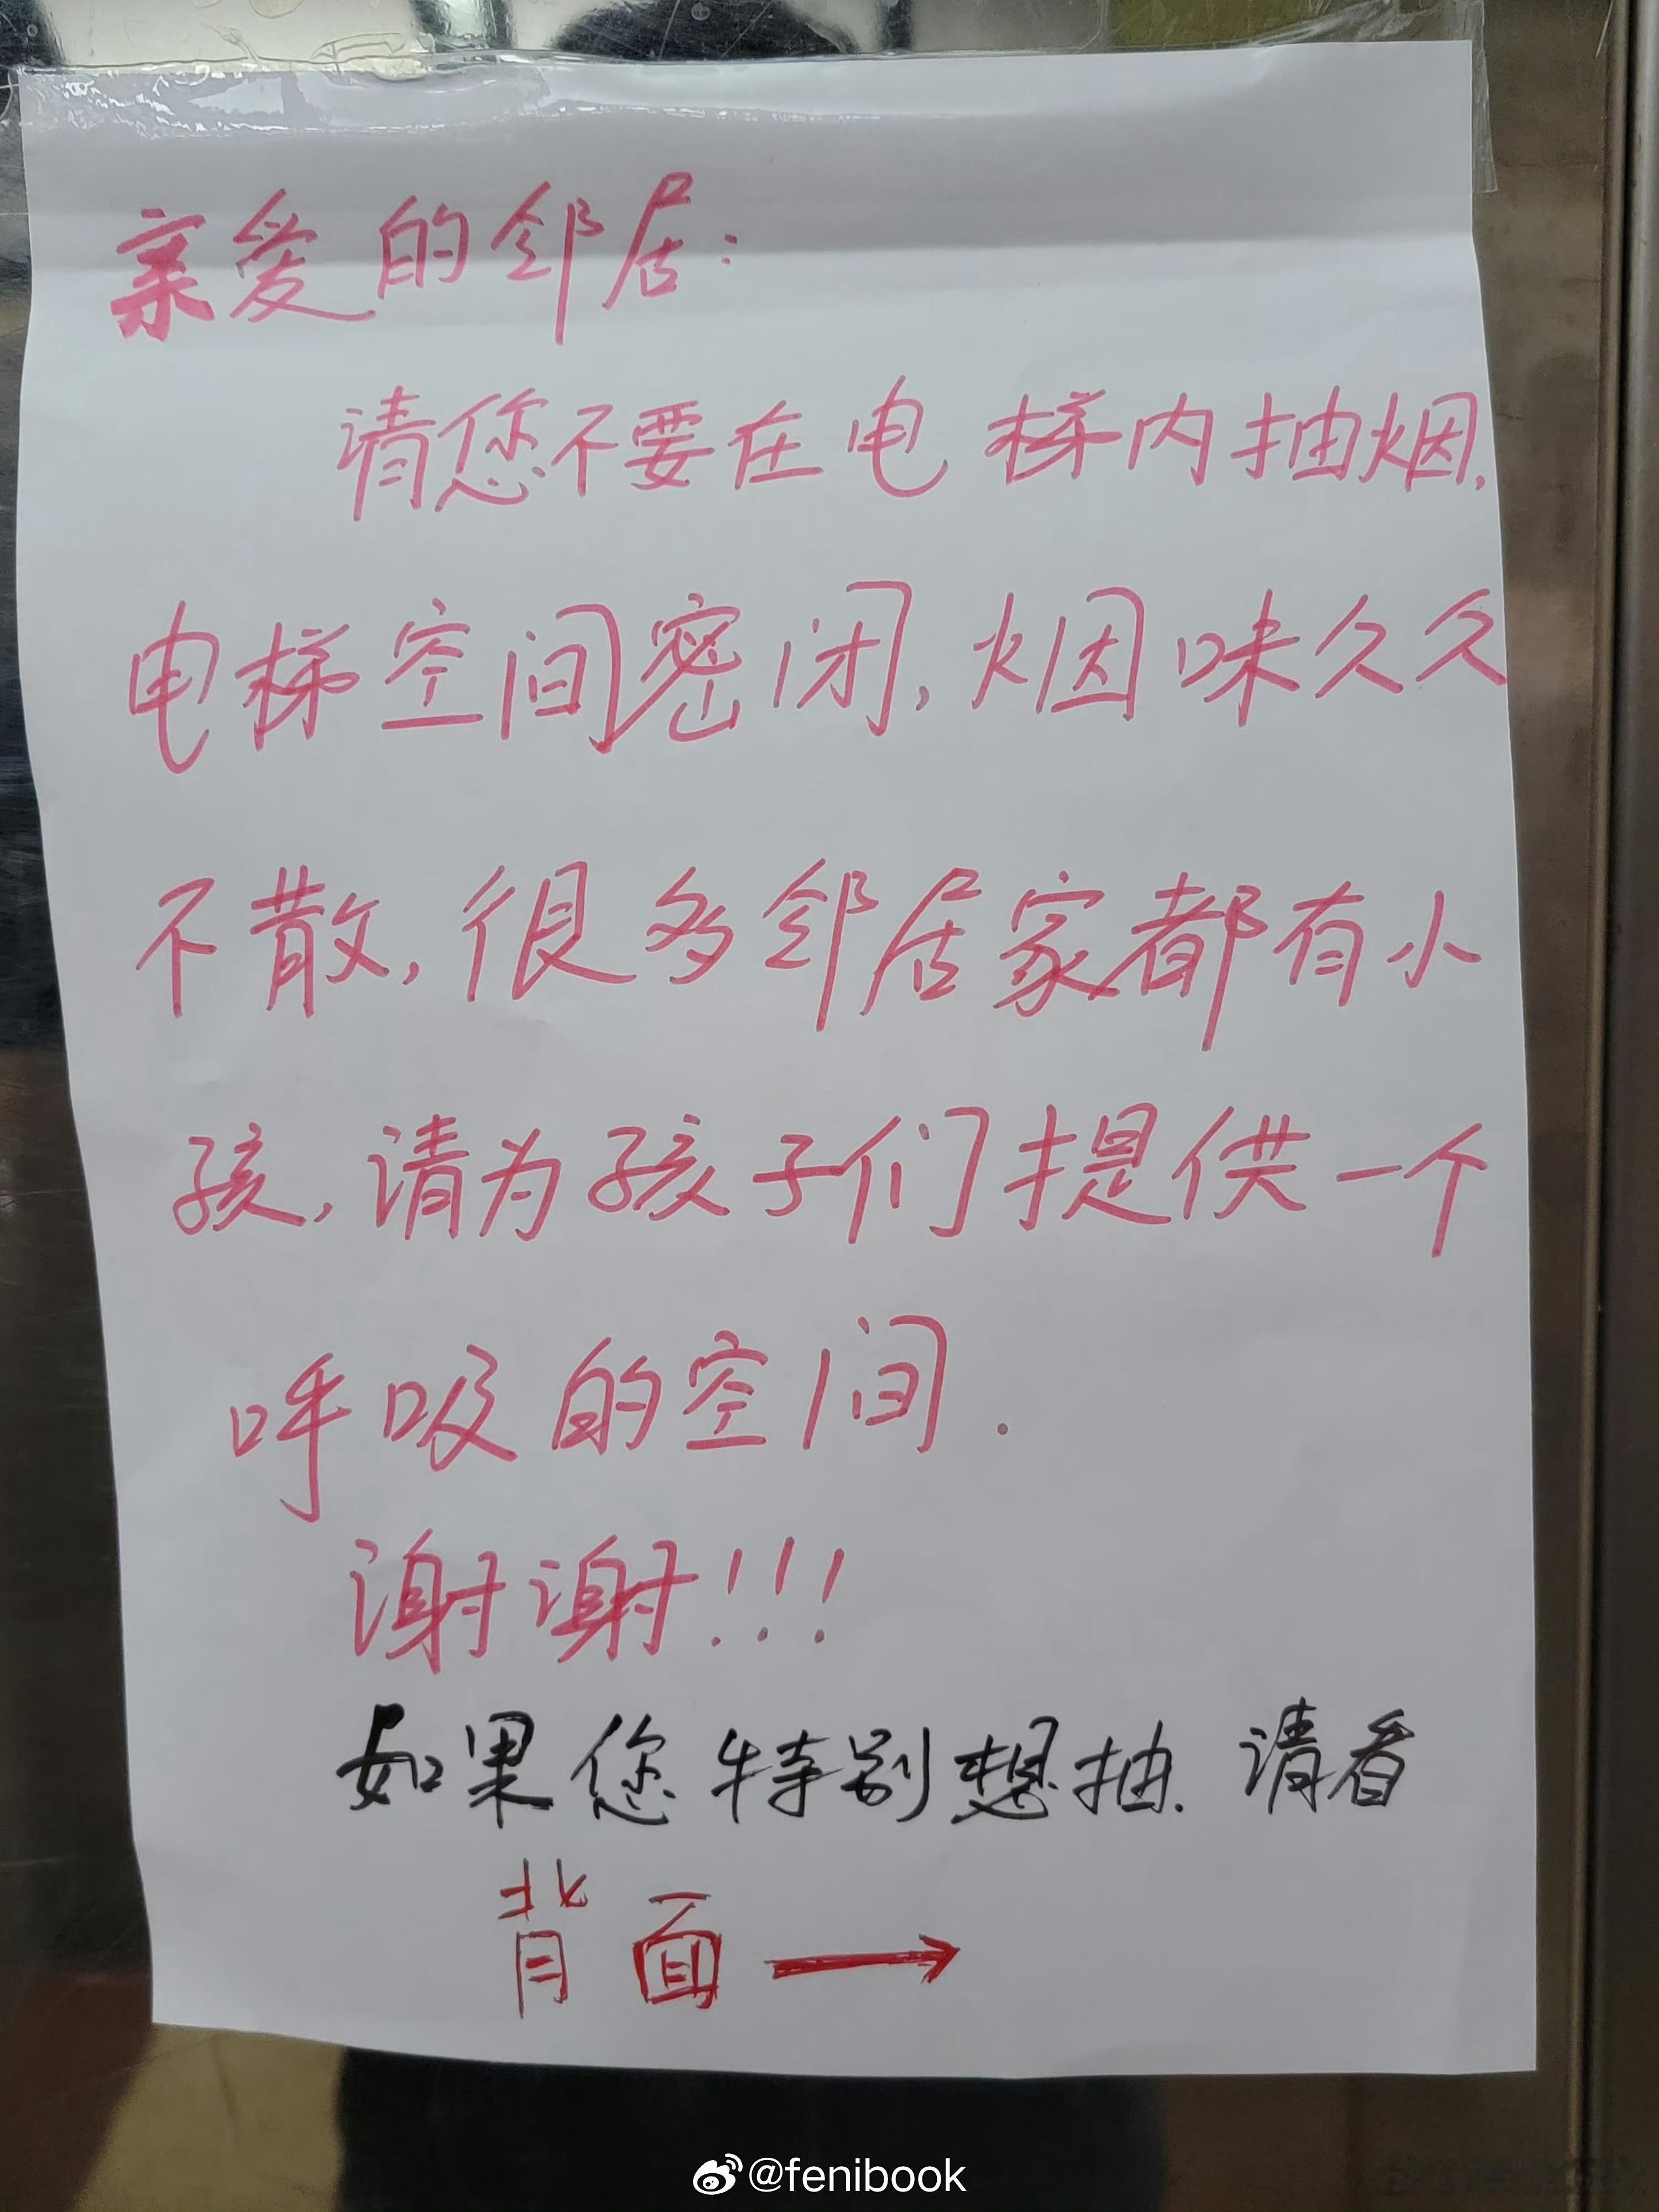 亲爱的邻居：
请您不要在电梯内抽烟,
电梯空间密闭,烟味久久
不散,很多邻居家都有小
孩,请为孩子们提供一个
呼吸的空间.
谢谢!!!
如果您特别想抽.请看
背面→
@fenibook